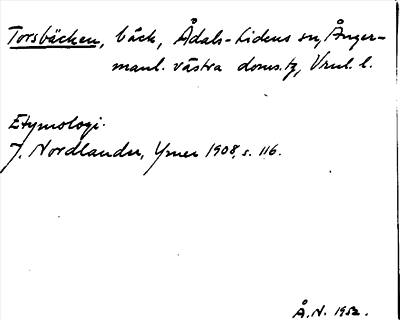 Torsbäcken, bäck, Ådals-Lidens sn, Ånger-
manl. västra doms. tg, Vnul. l.
Etymologi.
J. Nordlander, Ymer 1908, s. 116.
Å.N. 1952.